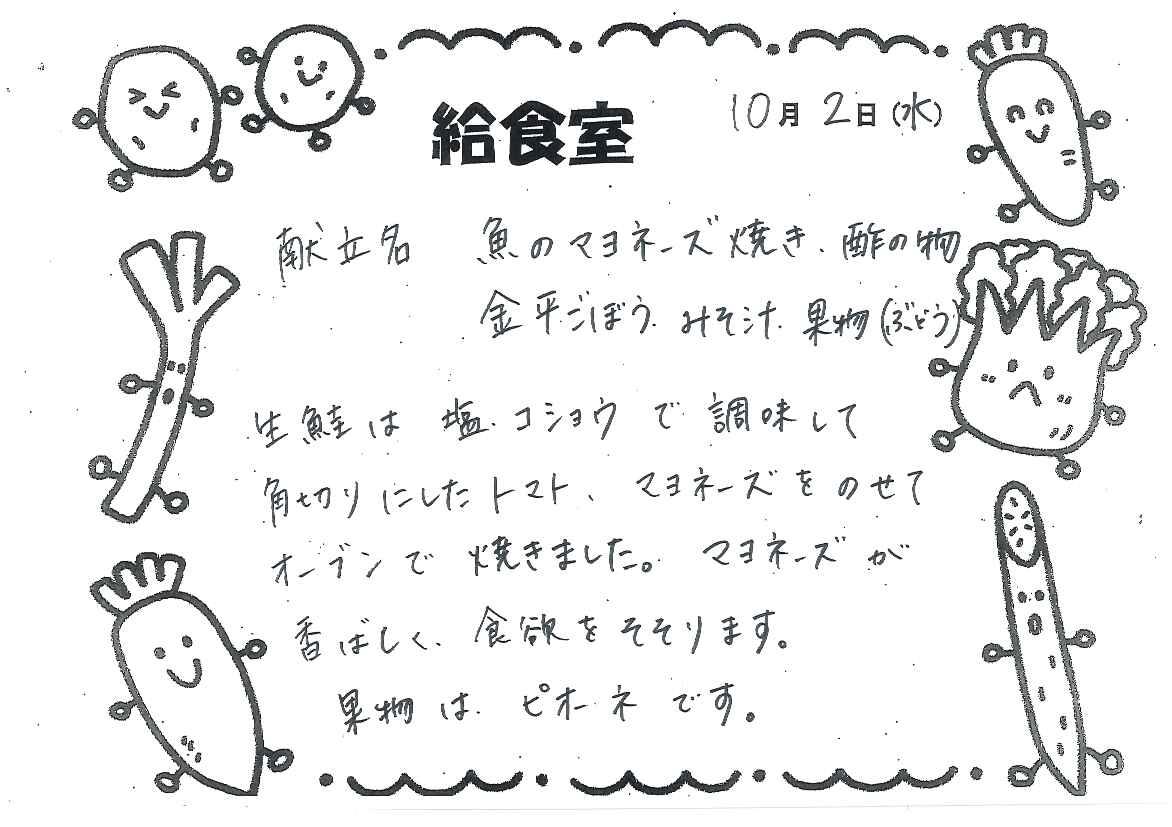 給食室
10月2日(水)
献立名 魚のマヨネーズ焼き、酢の物
金平ごぼう、みそ汁、果物(ぶどう)
生鮭は 塩、コショウ で 調味して
角切りにしたトマト、マヨネーズをのせて
オーブンで 焼きました。マヨネーズが
香ばしく、食欲をそそります。
果物は、ピオーネです。